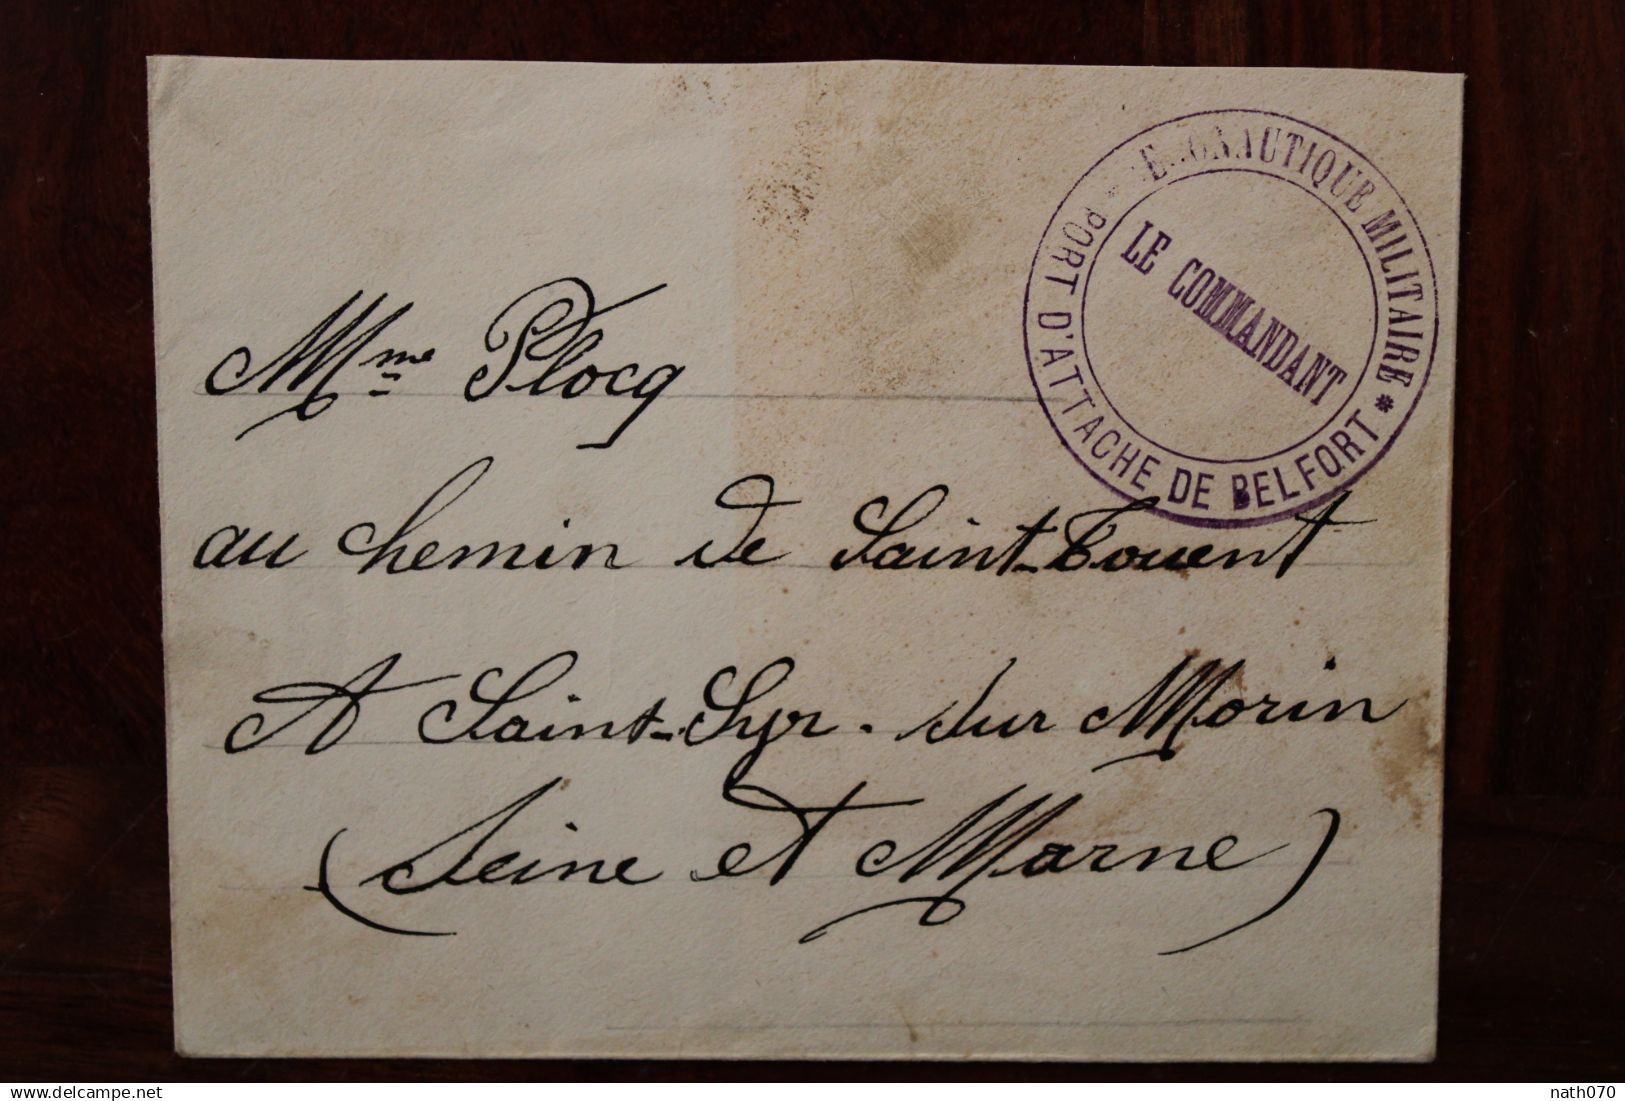 AERONAUTIQUE MILITAIRE *
LE COMMANDANT
PORT D'ATTACHE DE BELFORT
Mme Plocq
au chemin de Saint-Touent
A Saint-Cyr-sur Morin
(Seine et Marne)
delcampe.net
nath070